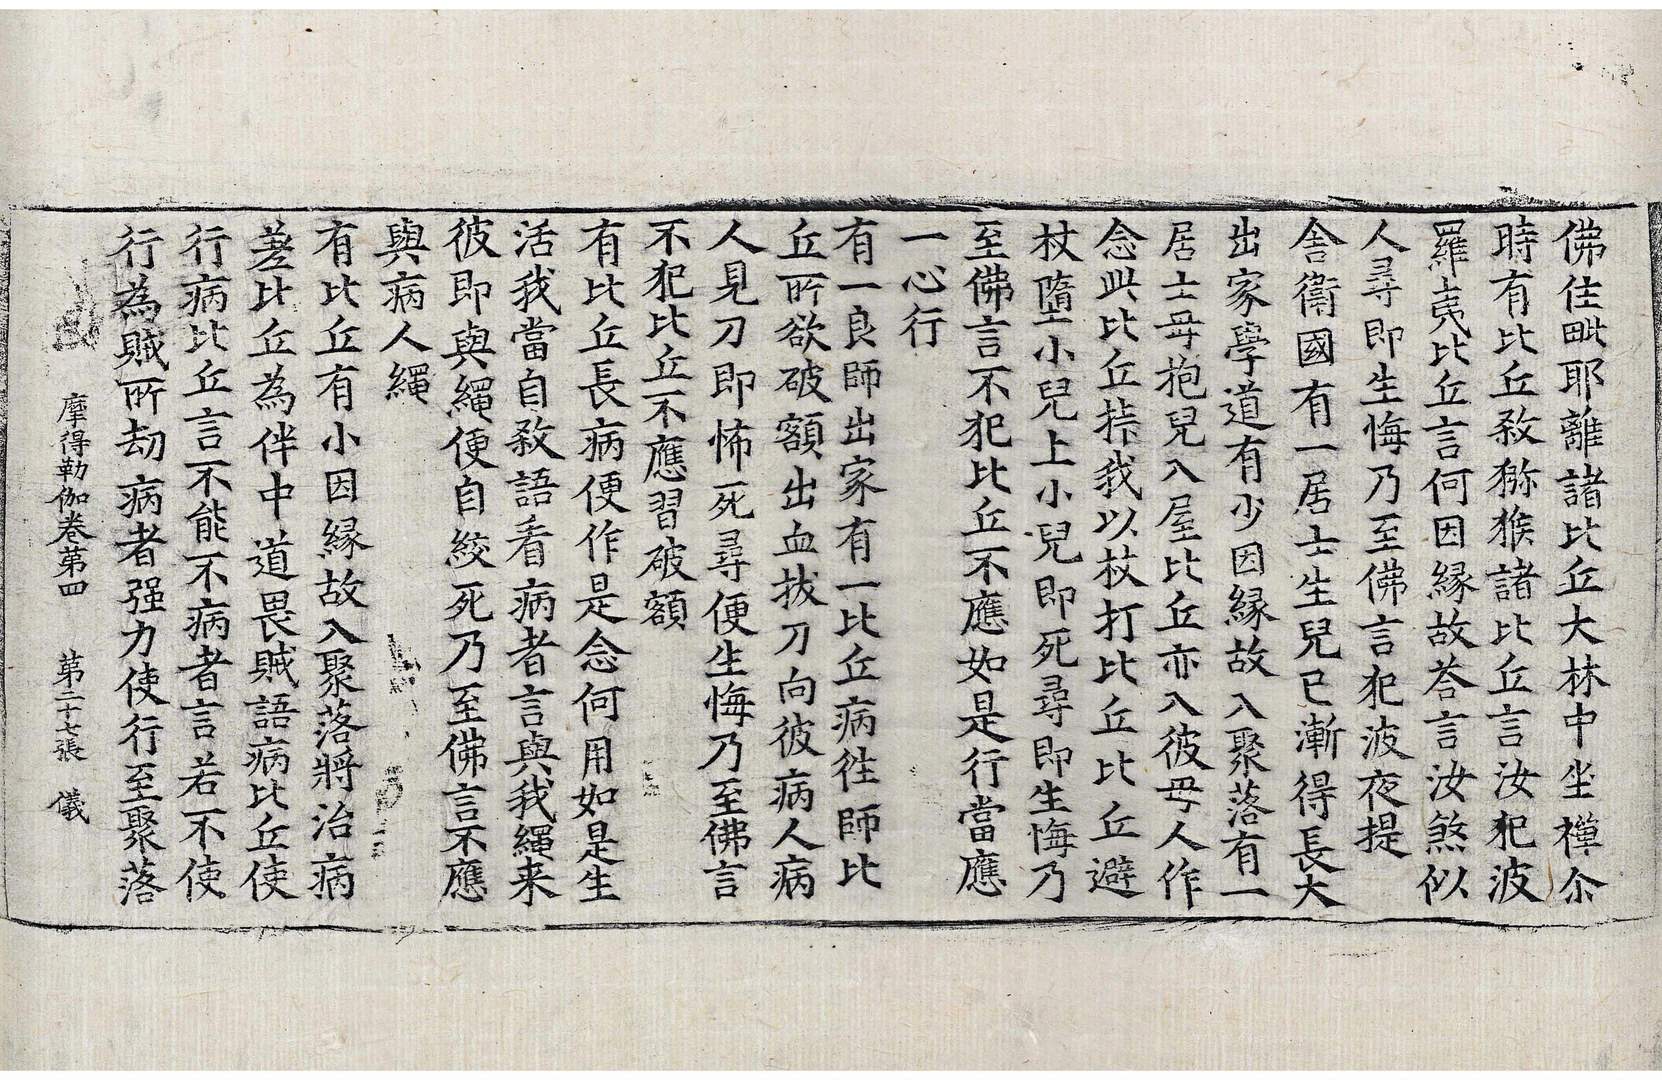 佛住毗耶離諸比丘大林中坐禪尒
時有比丘敎猕猴諸比丘言汝犯波
羅夷比丘言何因緣故荅言汝煞似
人尋即生悔乃至佛言犯波夜提
舍衞國有一居士生兒已漸得長大
出家學道有少因緣故入聚落有一
居士母抱兒入屋比丘亦入彼母人作
念此比丘㧊我以杖打比丘比丘避
杖墮小兒上小兒即死尋即生悔乃
至佛言不犯比丘不應如是行當應
一心行
有一良師出家有一比丘病往師比
丘所欲破額出血拔刀向彼病人病
人見刀即怖死尋便生悔乃至佛言
不犯比丘不應習破額
有比丘長病便作是念何用如是生
活我當自敎語看病者言與我繩来
彼即與繩便自絞死乃至佛言不應
與病人繩
有比丘有小因緣故入聚落將治病
差比丘為伴中道畏賊語病比丘使
行病比丘言不能不病者言若不使
行為賊所劫病者强力使行至聚落
摩得勒伽卷第四 第二十七張 儀